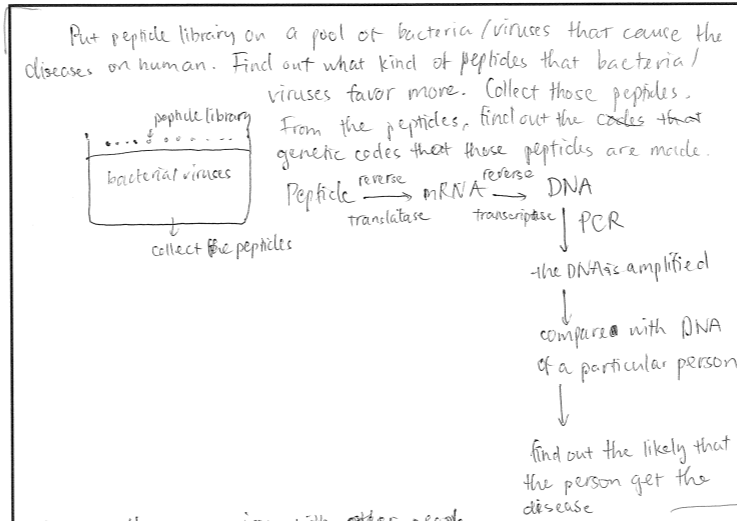 Put peptide library on a pool of bacteria/viruses that cause the
diseases on human. Find out what kind of peptides that bacteria/
viruses favor more. Collect those peptides.
From the peptides, find out the codes that
genetic codes that those peptides are made.
peptide library
bacterial viruses
collect the peptides
Peptide reverse translatase mRNA reverse transcriptase DNA
PCR
the DNA is amplified
compare with DNA
of a particular person
find out the likely that
the person get the
disease